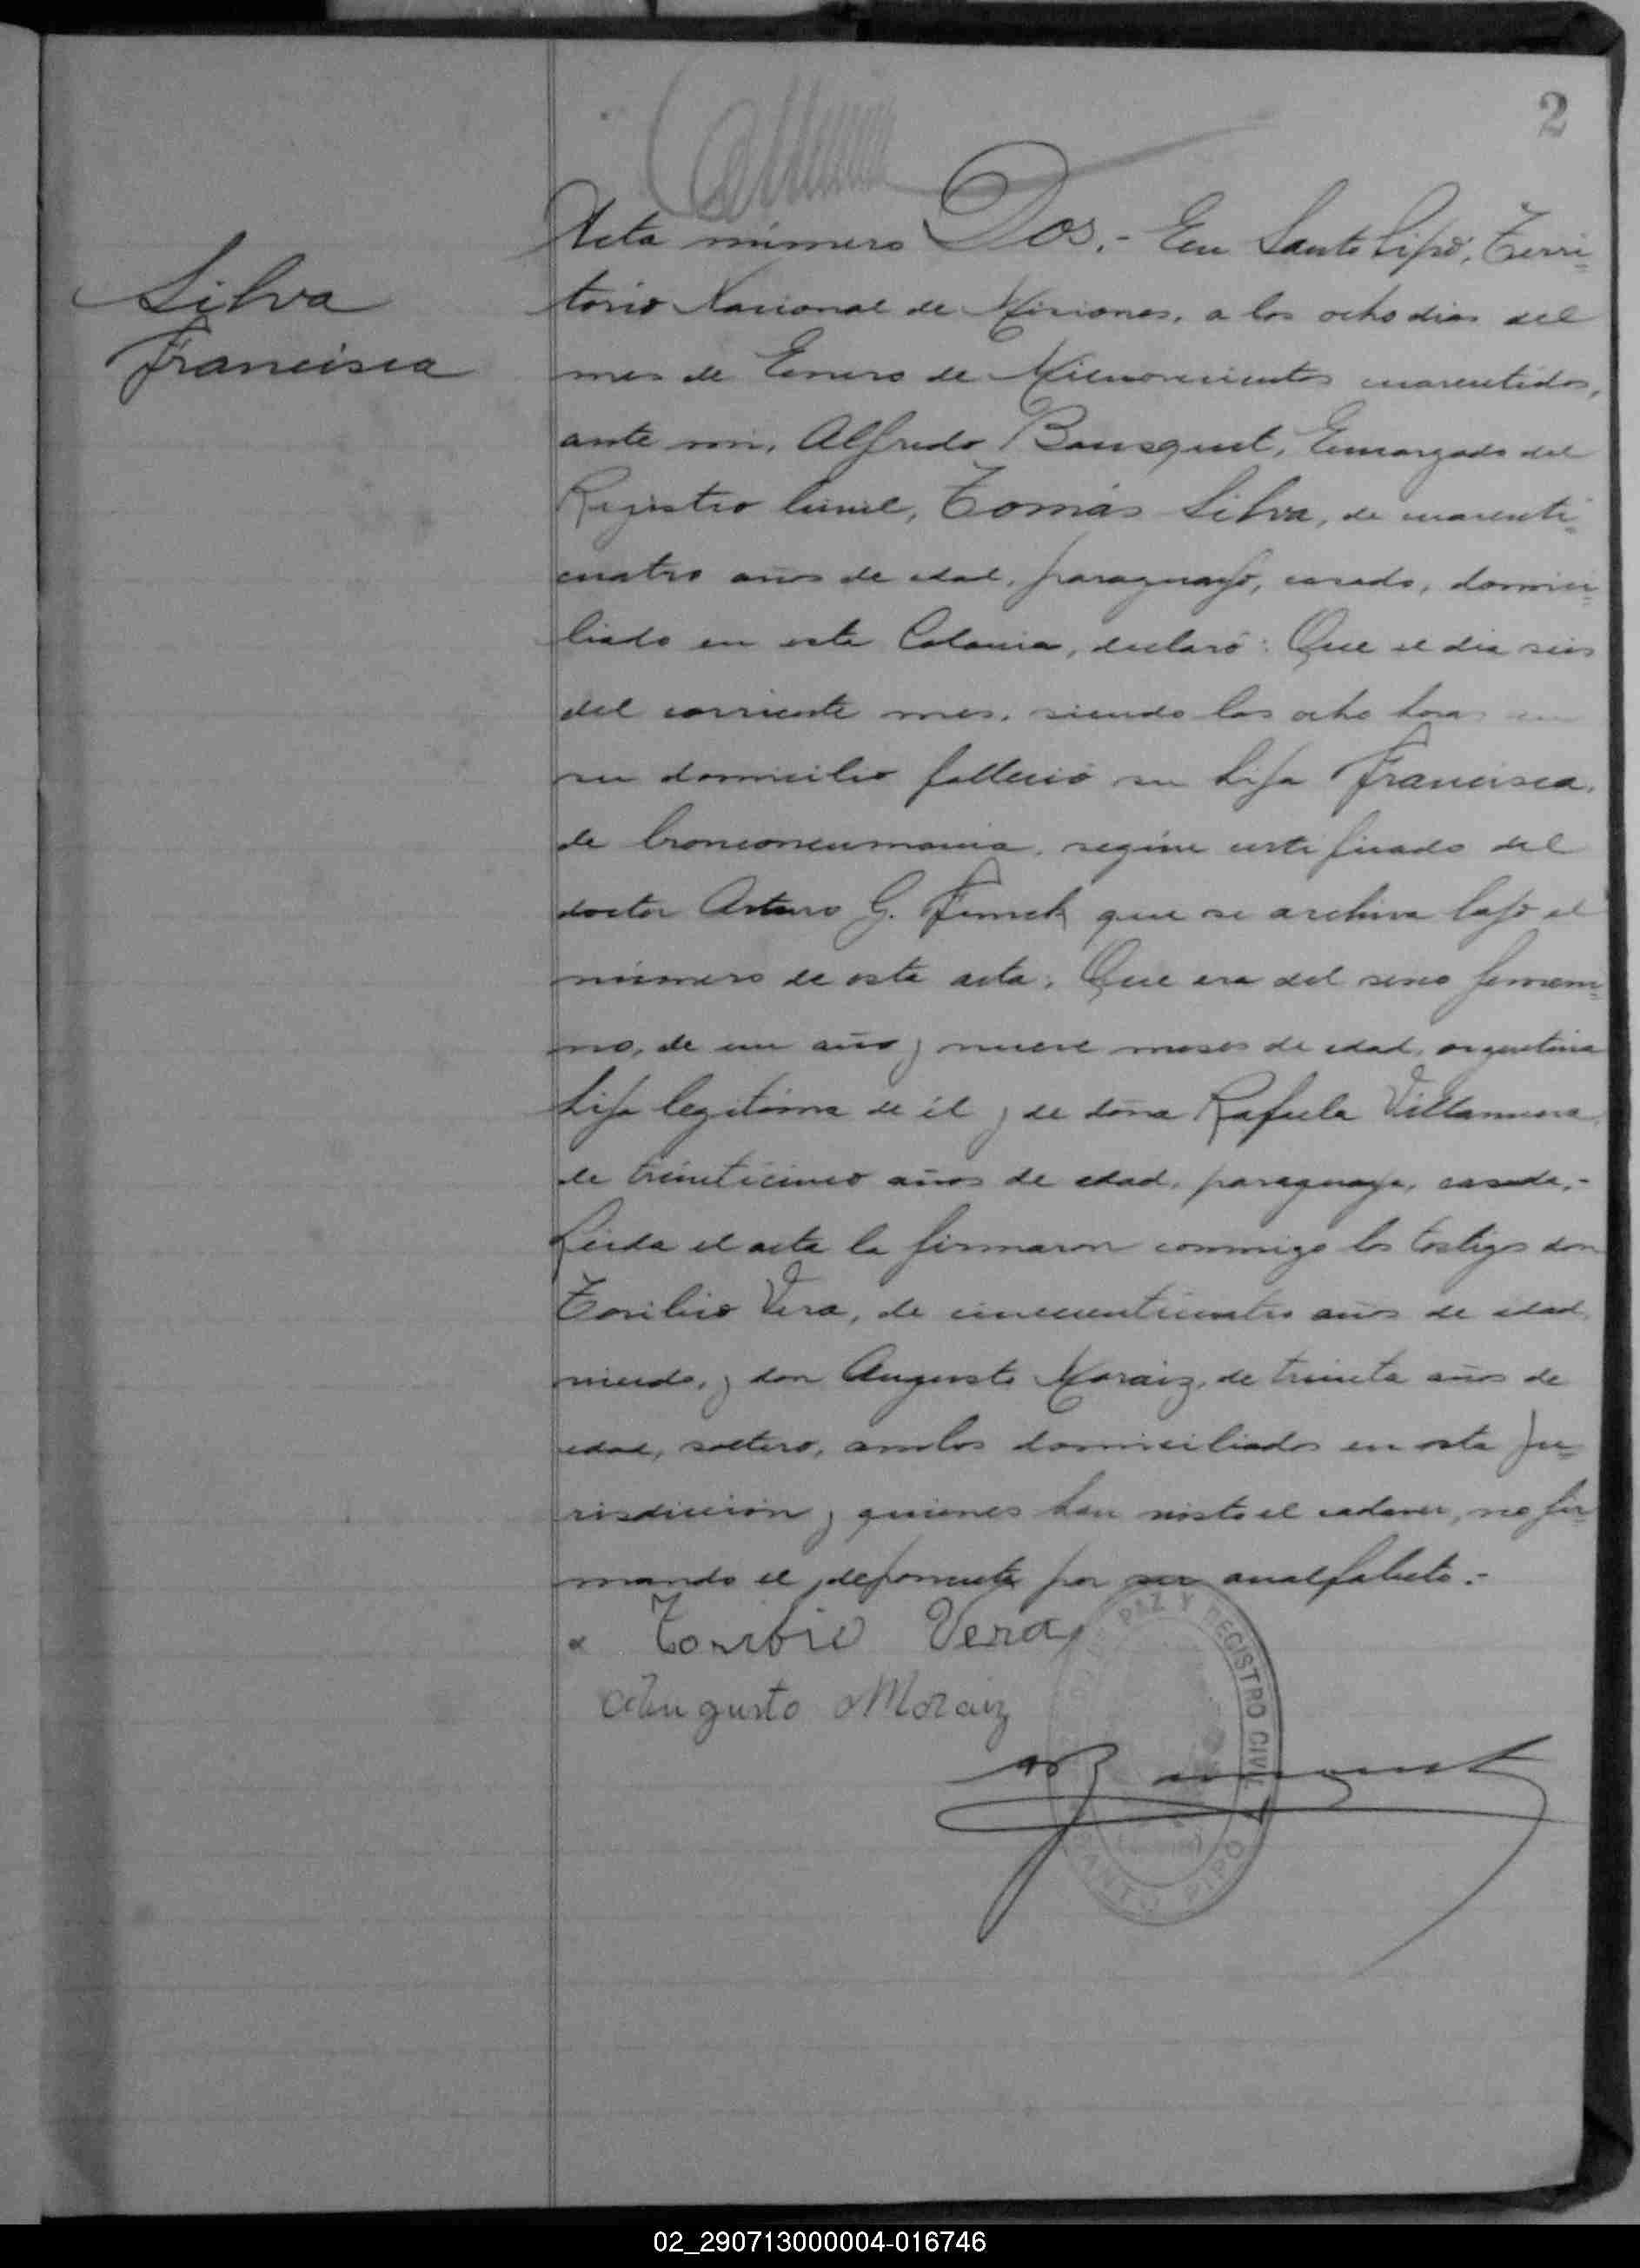 2
Silva
Francisca
Acta número Dos.- En Santo Pipó, Terri=
torio Nacional de Misiones, a los ocho dias del
mes de Enero de Milnovecientos cuarentidos,
ante mi, Alfredo Bousquet, Encargado del
Registro Civil, Tomás Silva, de cuarenti=
cuatro años de edad, paraguayo, casado, domici=
liado en esta Colonia, declaró: Que el dia seis
del corriente mes, siendo las ocho horas en
su domicilio falleció su hija Francisca,
de bronconeumonia, según certificado del
doctor Arturo G. que se archiva bajo el
número de esta acta; Que era del sexo femeni=
no, de un año y nueve meses de edad, argentina
hija legitima de él y de doña Rafaela Villanueva,
de treinticinco años de edad, paraguaya, casada.-
Leida el acta la firmaron conmigo los testigos don
Toribio Vera, de cincuenticuatro años de edad,
viudo, y don Augusto Moraiz, de treinta años de
edad, soltero, ambos domiciliados en esta ju=
risdicción y quienes han visto el cadaver, no fir=
mando el deponente por ser analfabeto.-
Toribio Vera
Augusto Moraiz
Bousquet
PAZ Y REGISTRO CIVIL
SANTO PIPO
02_290713000004-016746